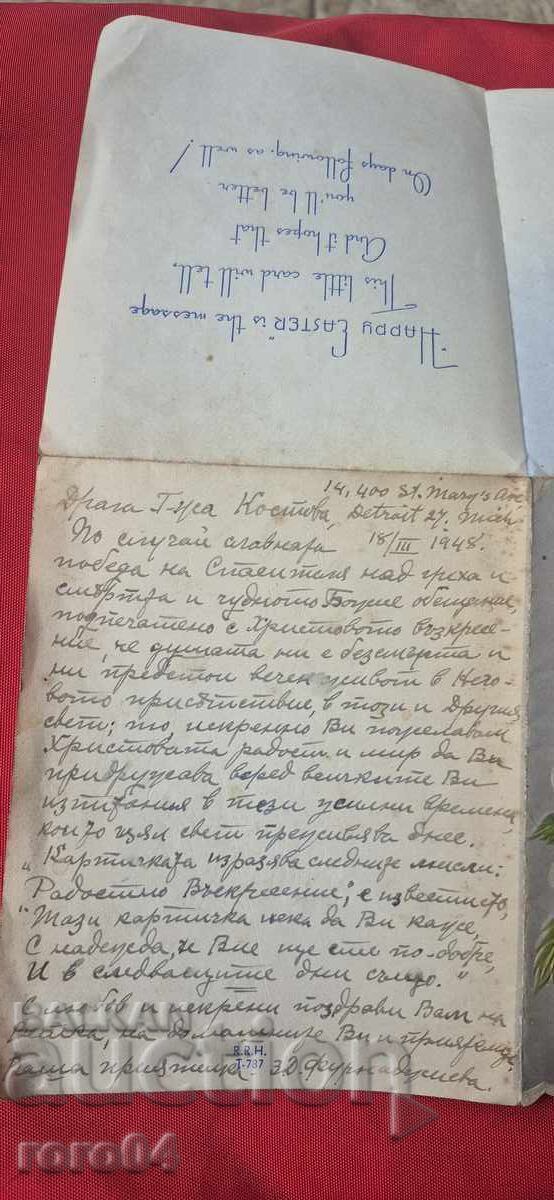 "HAPPY EASTER" is the message
This little card will tell,
And it hopes that
you'll be better
On days following, as well!
14,400 St. Mary's Ave
Драга Г-жа Костова, Detroit 27, Mich.
По случай славната 18/III 1948.
победа на Спасителя над греха и
смъртта и чудното Божие обещание,
подпечатано с Христовото възкресе-
ние, че душата ни е безсмъртна и
ни предстои вечен живот в Него-
вото присътствие, в този и другия
свет; то, искренно Ви пожелавам
Христовата радост и мир да Ви
придружава всред всичките Ви
изпитания в тези усилни времена,
които цял свет преживява днес.
"Картичката изразява следните мисли:
Радостно Възкресение, е известието,
"Тази картичка нека да Ви каже,
С надежда, и Вие ще сте по-добре,
И в следващите дни също."
С любов и искрени поздрави Вам на
на домашните Ви и приятели
Ваша приятелка З.Д. Фурнаджиева.
R.R.H.
T-787
auction
roro04